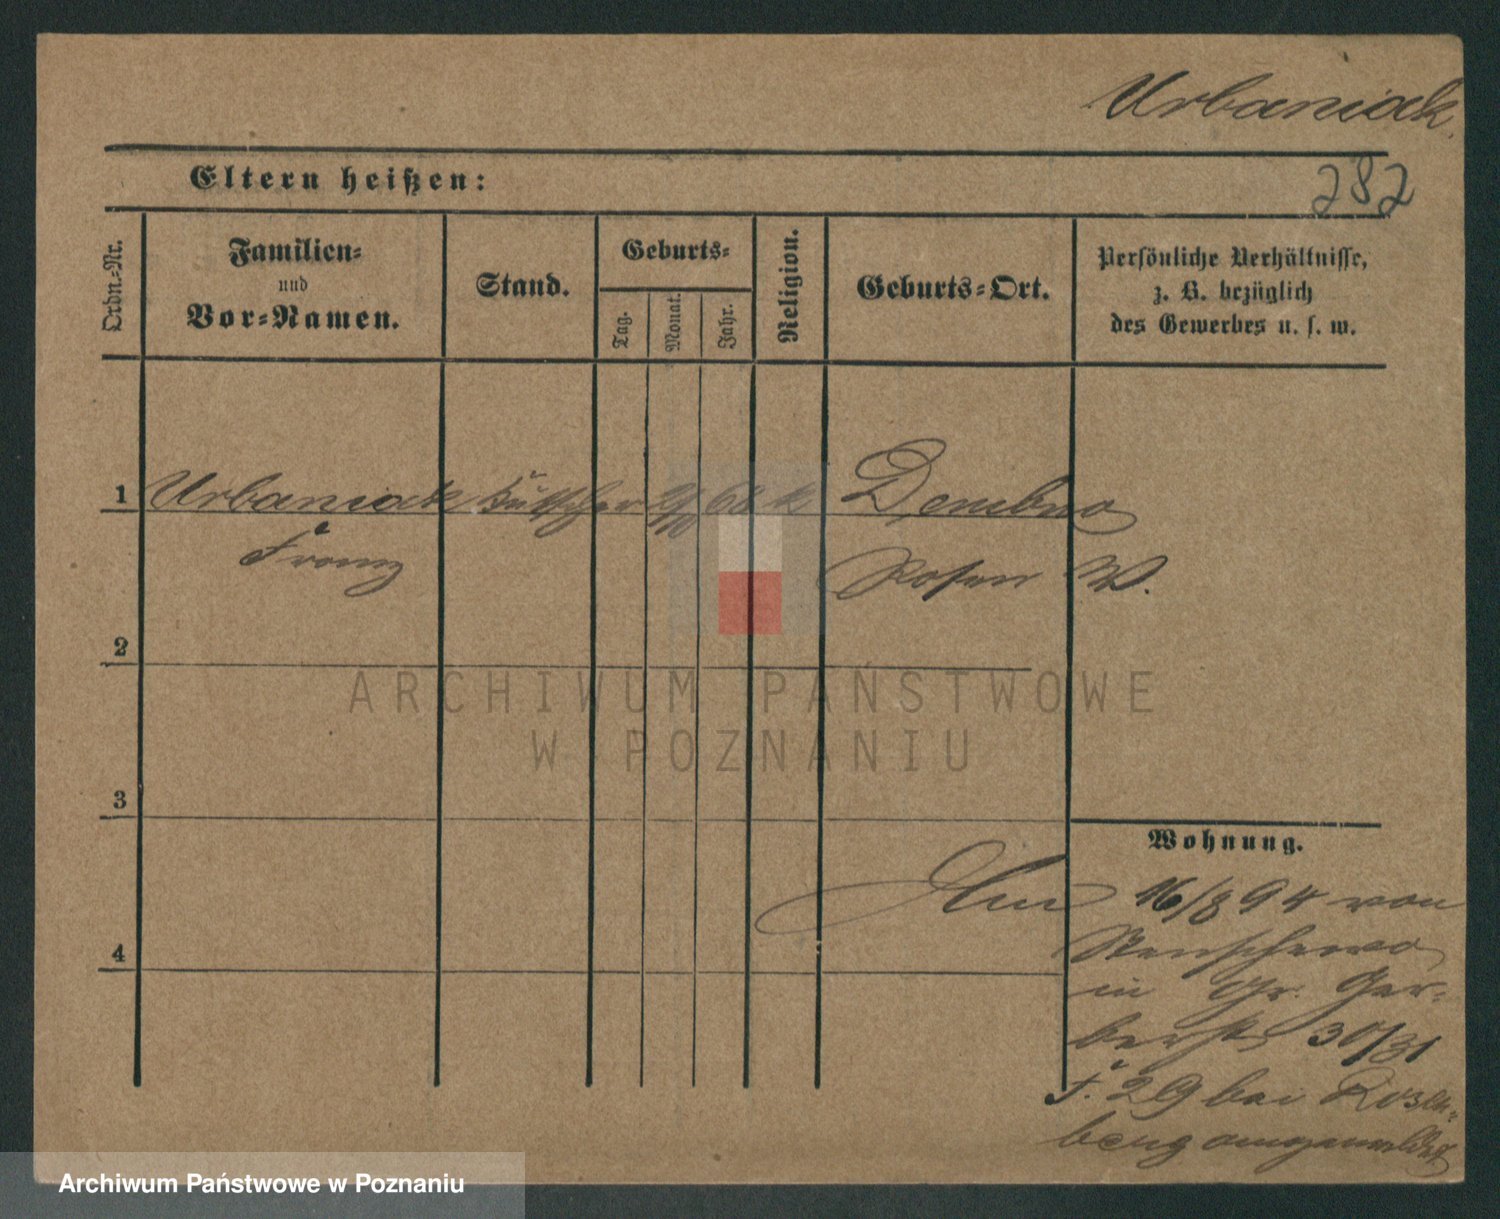 Urbaniak.
282
Eltern heißen:
Ordn.-Nr.
Familien-
und
Vor-Namen.
Stand.
Geburts-
Tag.
Monat.
Jahr.
Religion.
Geburts-Ort.
Persönliche Verhältnisse,
z. B. bezüglich
des Gewerbes u. s. w.
1 Urbaniak Böttcher 68 k Dembno
Franz
Posen W.
2
ARCHIWUM PAŃSTWOWE
W POZNANIU
3
Wohnung.
Am 16/8 94 von
Stenschewo
in Gr. Ger-
berstr 30/31
b. 29 bei Rosen-
berg angemeldet
4
Archiwum Państwowe w Poznaniu